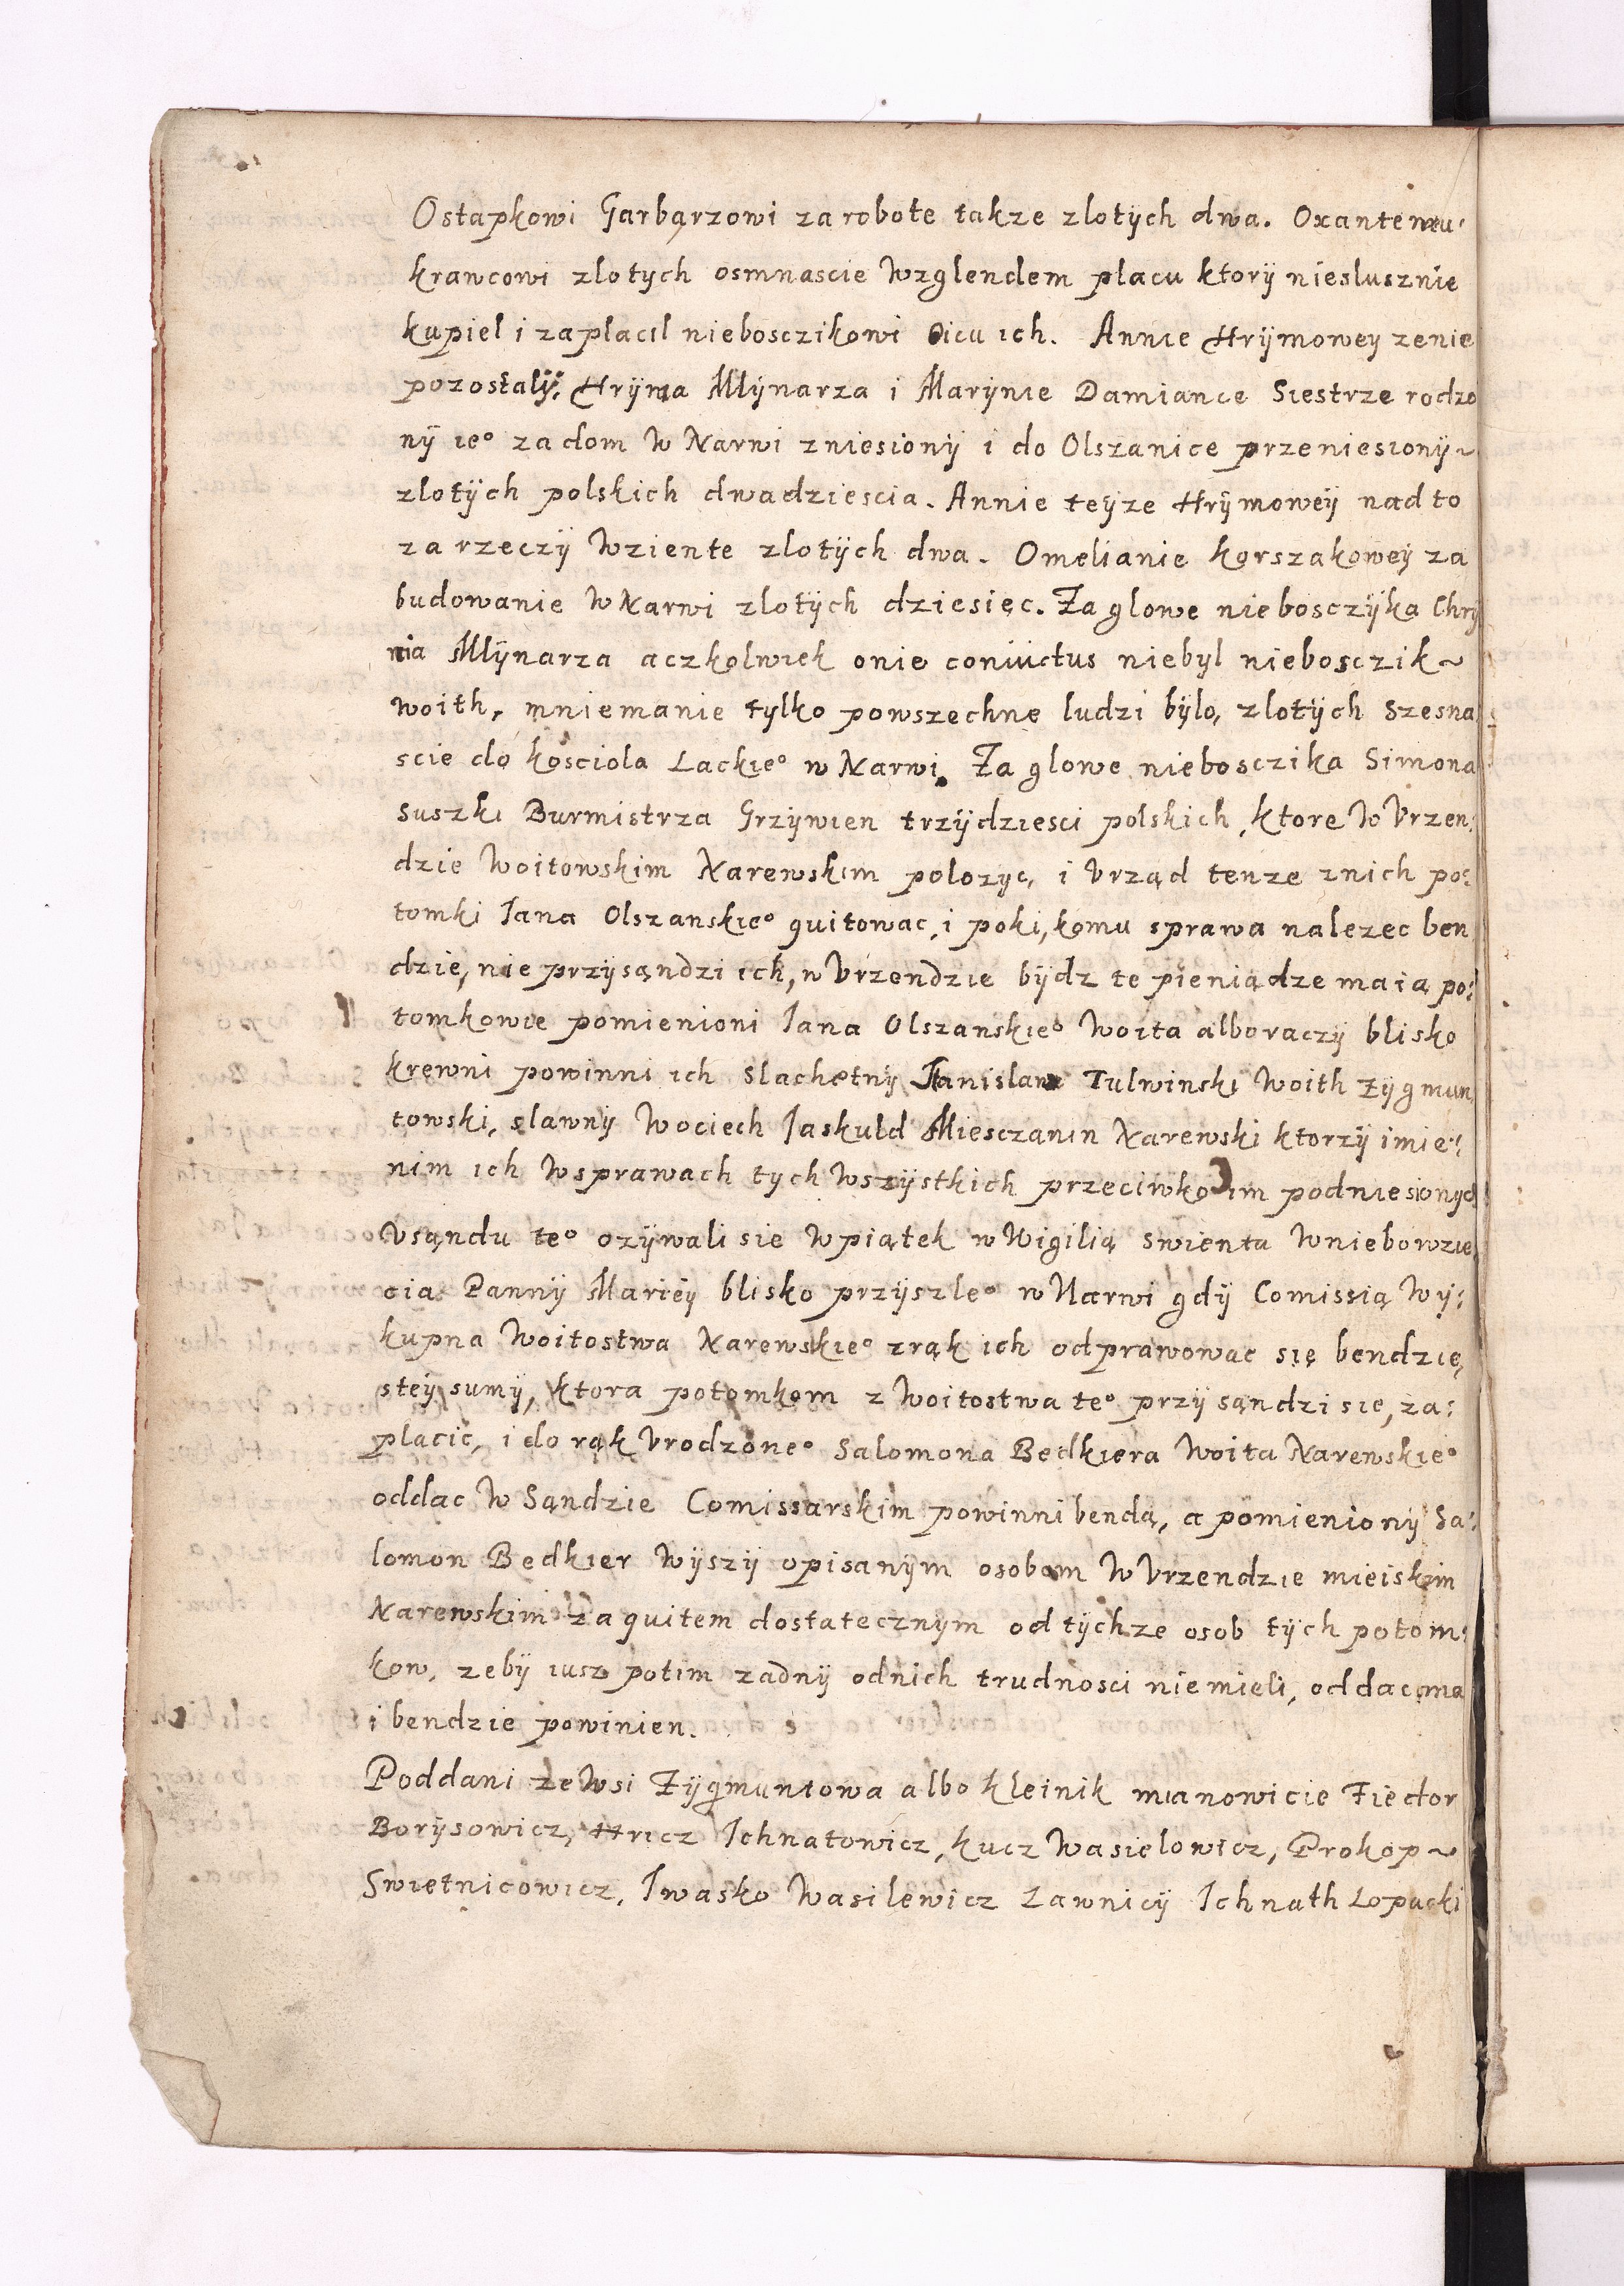 Ostapkowi Garbarzowi za robote takze zlotÿch dwa. Oxantemu
krawcowi zlotych osmnascie Wzglendem placu ktorÿ nieslusznie
kupiel i zaplacil niebosczikowi oicu ich. Annie Hrÿmowey zenie
pozostalÿ: Hrÿma Mlÿnarza i Marÿnie Damiance Siestrze rodzo
nÿ ie° za dom W Narwi zniesionÿ i do Olszanice przeniesionÿ~
zlotÿch polskich dwadziescia. Annie teÿze Hrÿmoweÿ nad to
za rzeczÿ Wziente zlotÿch dwa. Omelianie Korszakoweÿ za
budowanie W Narwi zlotÿch dziesięc. Za glowe niebosczÿka Chrÿ
nia Mlÿnarza aczkolwiek onie conuictus niebÿl niebosczik~
Woith, mniemanie tylko powszechne ludzi bÿlo, zlotÿch Szesna
scie do kosciola Lackie° w Narwi. Za glowe niebosczika Simona
Suszki Burmistrza Grzÿwien trzÿdziesci polskich, ktore W Vrzen:
dzie Woitowskim Narewskim polozyc, i Vrząd tenze znich po:
tomki Iana Olszanskie° quitowac, i poki, komu sprawa nalezec ben
dzie, nie przÿsąndzi ich, w Vrzendzie bÿdz te pieniądze maią po:
tomkowie pomienioni Iana Olszanskie° Woita alboraczÿ blisko
krewni powinni ich Slachetnÿ Stanislaw Tulwinski Woith Zÿgmun
towski, slawnÿ Wociech Iaskuld Miesczanin Narewski ktorzÿ imie:
nim ich Wsprawach tych Wszÿstkich przeciwko im podniesionÿch
Vsąndu te° ozÿwali sie Wpiątek w Wigilią Swienta Wniebowzie
cia Pannÿ Marieÿ blisko przÿszle° w Narwi gdÿ Comissią Wÿ:
kupna Woitostwa Narewskie° zrąk ich odprawowac się bendzie,
steÿ sumÿ, ktora potomkom z Woitostwa te° przÿsąndzi sie, za:
placic, i do rąk Vrodzone° Salomona Bedkiera Woita Narewskie°
oddac W Sąndzie Comissarskim powinni bendą, a pomienionÿ Sa:
lomon Bedkier Wÿszÿ opisanÿm osobom W Vrzendzie mieiskim
Narewskim za quitem dostatecznym od tÿchze osob tÿch potom:
kow, zebÿ iusz potim zadnÿ odnich trudnosci niemieli, oddac ma
i bendzie powinien.
Poddani ze Wsi Zÿgmuntowa albo Kleinik mianowicie Fiedor
Borÿsowicz, Hricz Ichnatowicz, Kucz Wasielowicz, Prokop~
Swietnicowicz, Iwasko Wasilewicz Lawnicÿ Ichnath Lopacki